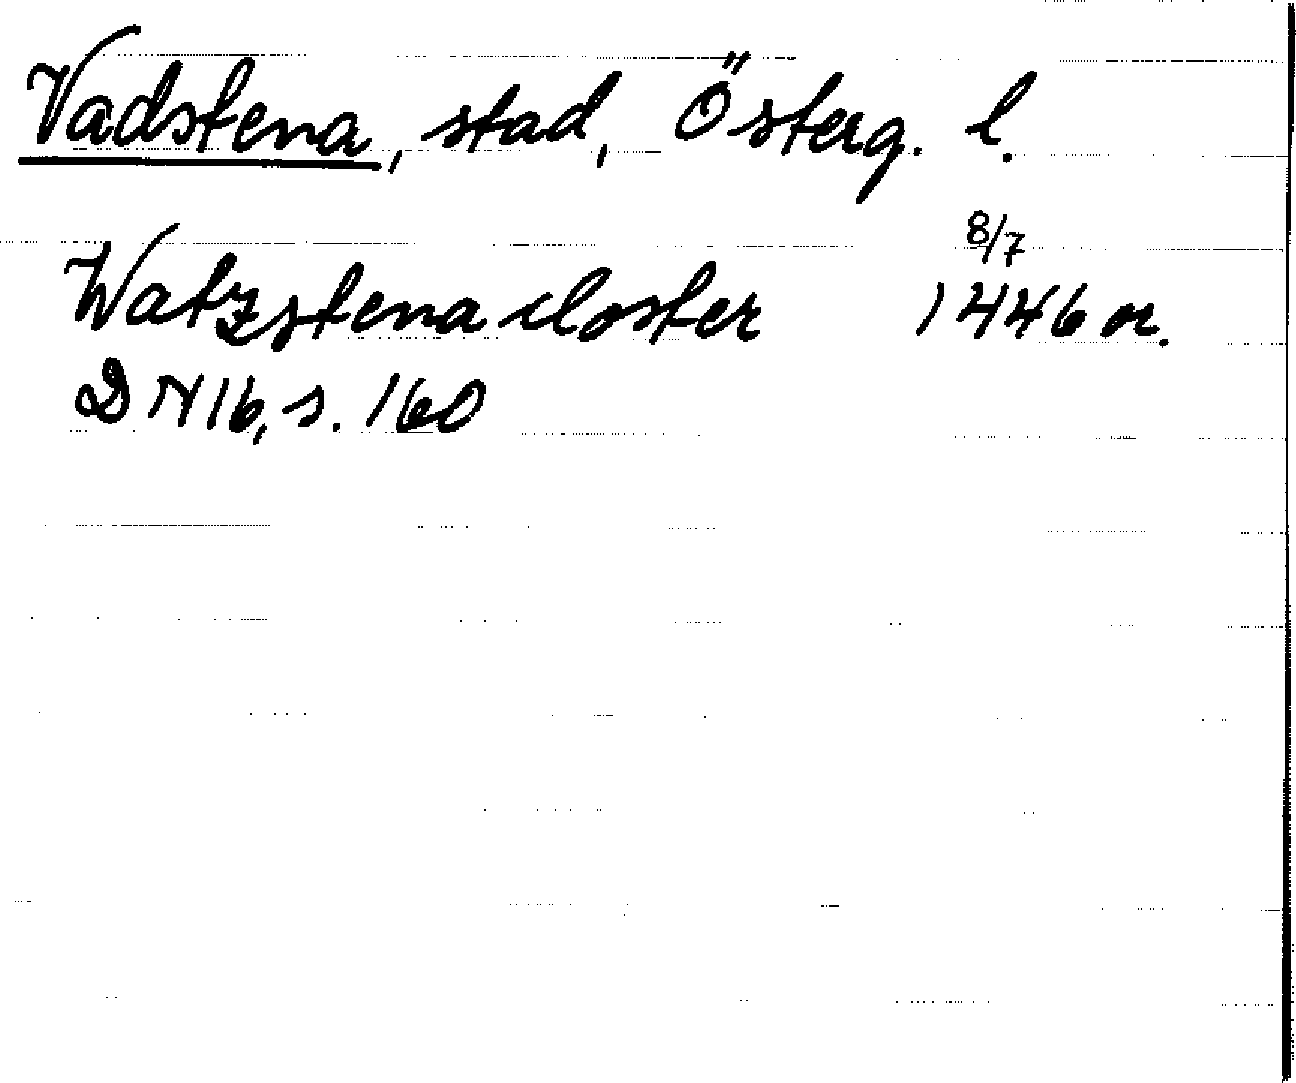 Vadstena, stad, Österg. l.
Watzstena closter 8/7 1446 or.
DN 16, s. 160